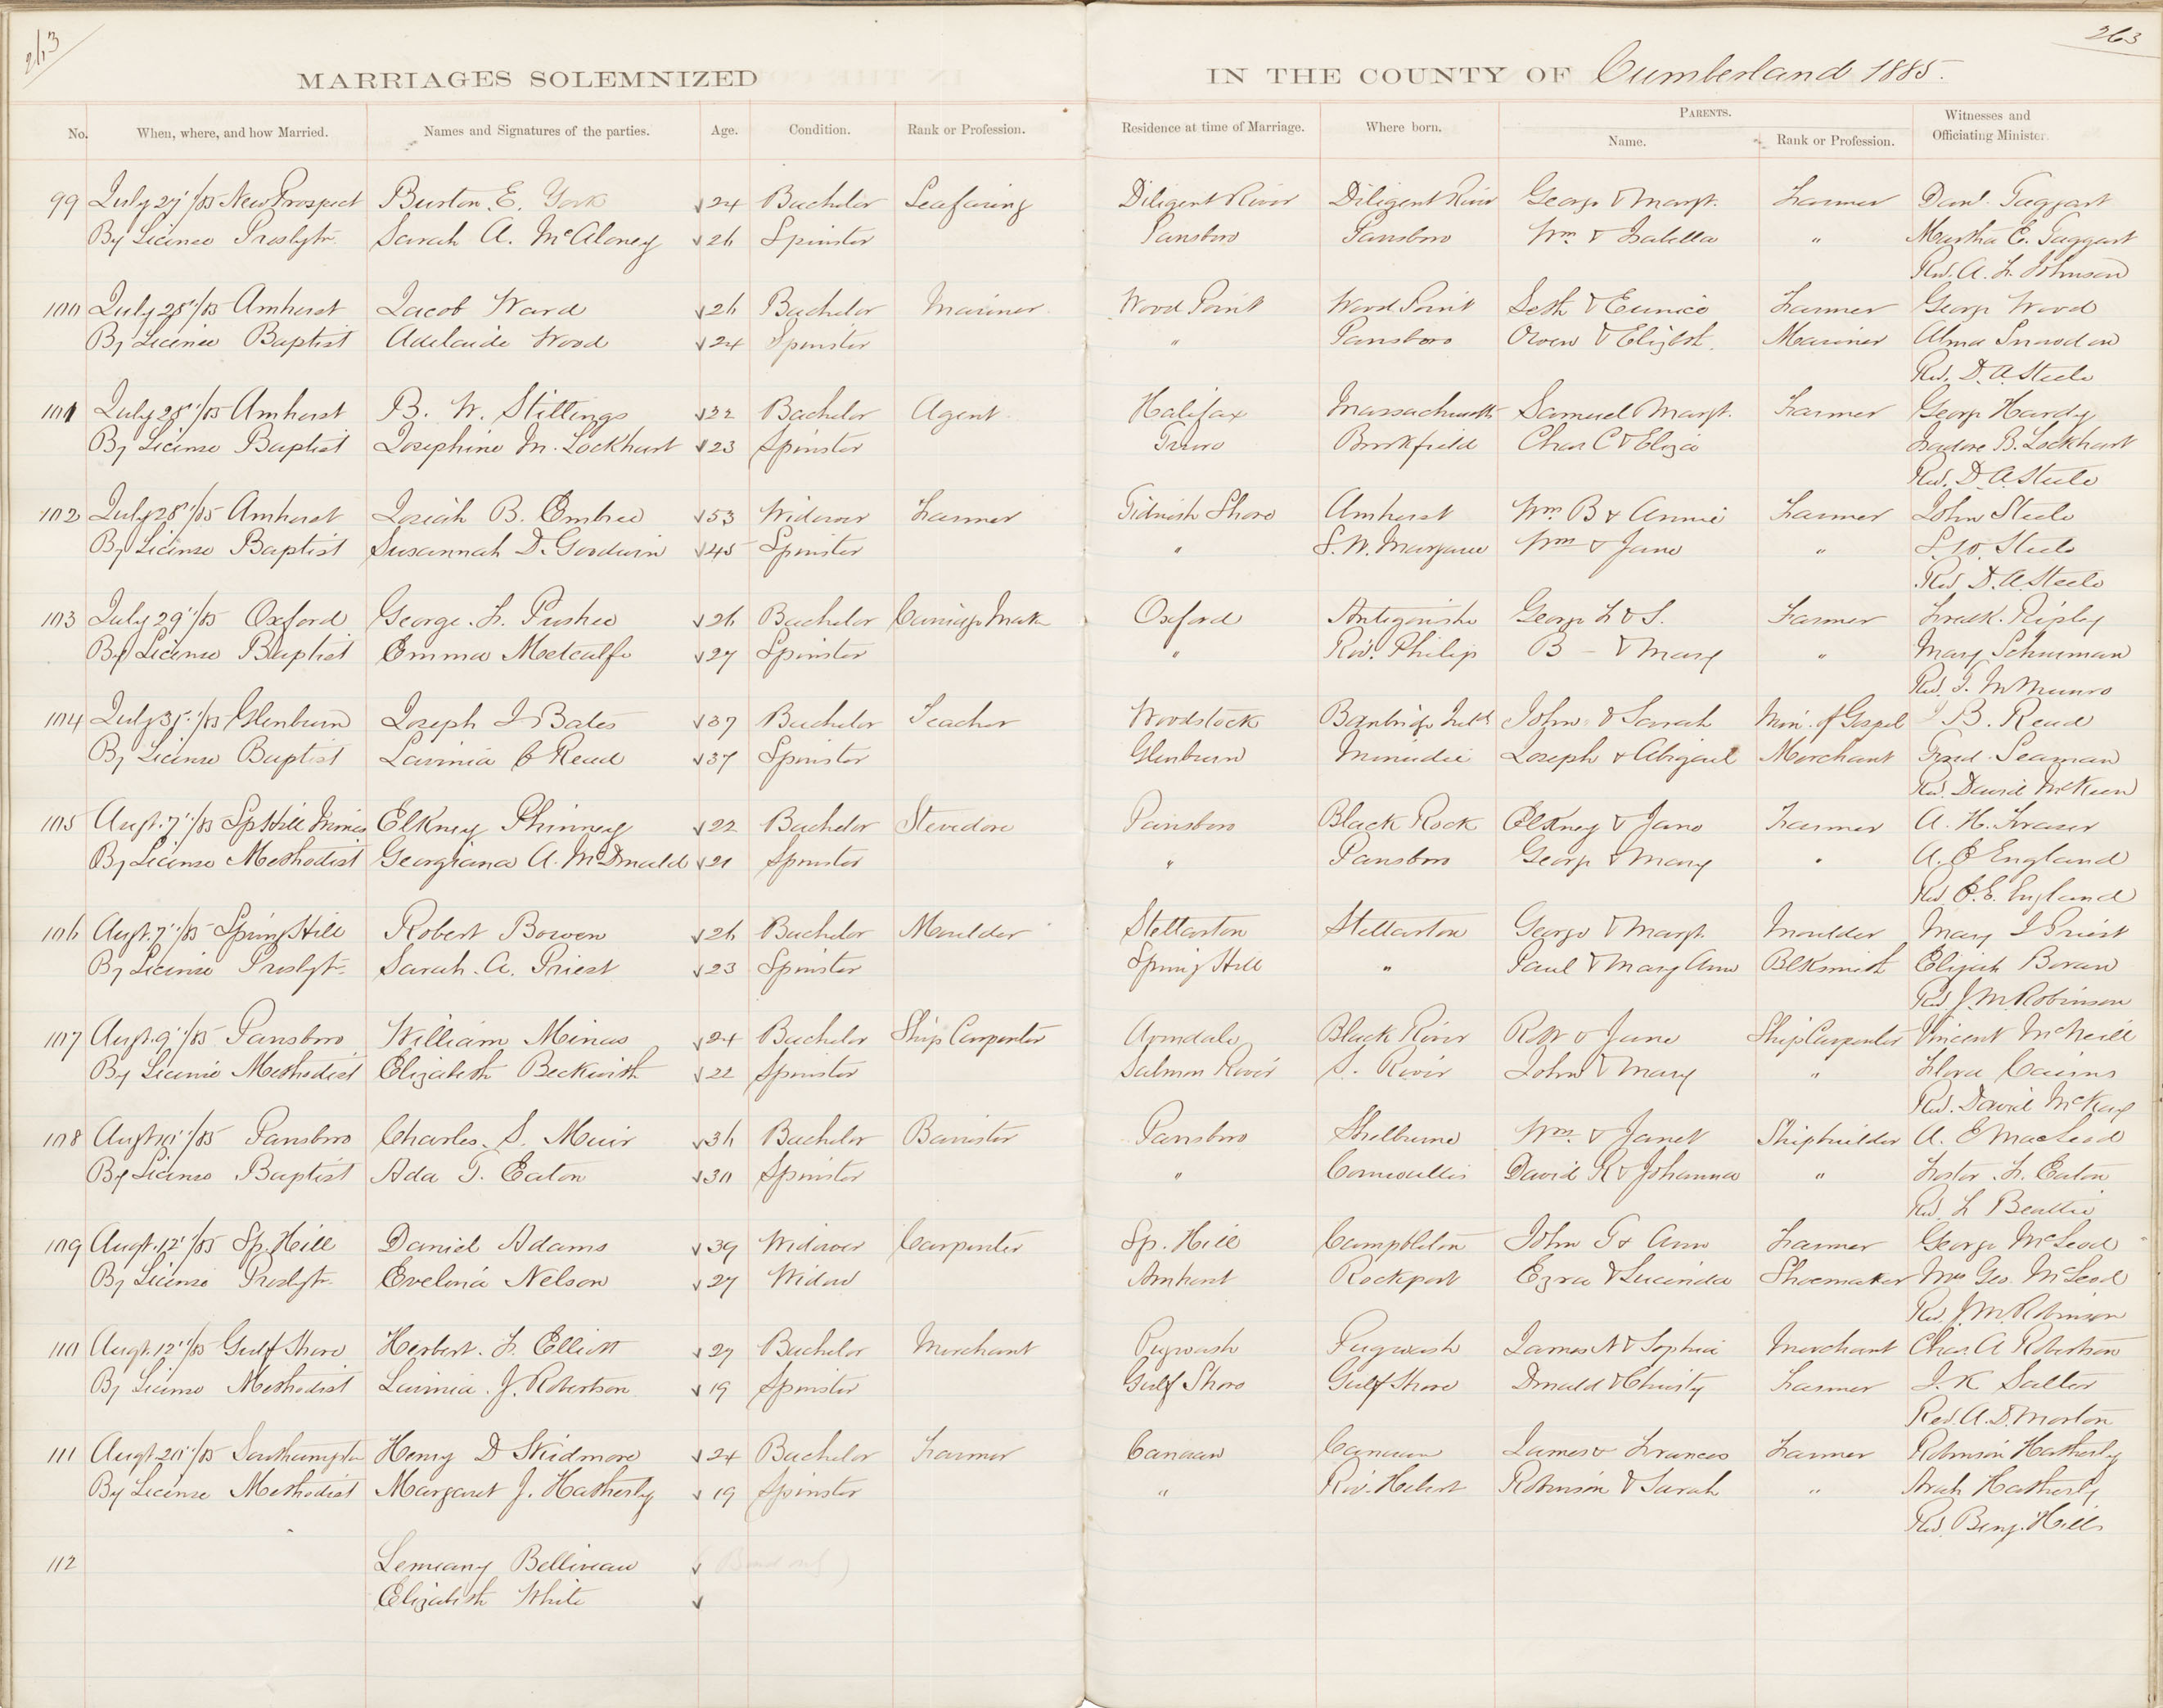 263
263
MARRIAGES SOLEMNIZED IN THE COUNTY OF Cumberland 1885.
No. When, where, and how Married. Names and Signatures of the parties. Age. Condition. Rank or Profession. Residence at time of Marriage. Where born. PARENTS. Name. Rank or Profession. Witnesses and Officiating Minister.
99 July 27"/85 New Prospect Burton E. York 24 Bachelor Seafaring Diligent River Diligent River George & Margt. Farmer Danl. Taggart
By License Presbytn. Sarah A. McAloney 26 Spinster Parrsboro Parrsboro Wm. & Isabella " Martha E. Taggart
Rev. A. F. Johnson
100 July 28"/85 Amherst Jacob Ward 26 Bachelor Mariner Wood Point Wood Point Seth & Eunice Farmer George Wood
By License Baptist Adelaide Wood 24 Spinster " Parrsboro Owen & Elizbth. Mariner Alma Snowdon
Rev. D. A. Steele
101 July 28"/85 Amherst B. W. Stillings 32 Bachelor Agent Halifax Massachusetts Samuel Margt. Farmer George Hardy
By License Baptist Josephine M. Lockhart 23 Spinster Truro Brookfield Chas C & Eliza Isadore B. Lockhart
Rev. D. A. Steele
102 July 28"/85 Amherst Josiah B. Embree 53 Widower Farmer Tidnish Shore Amherst Wm. B & Annie Farmer John Steele
By License Baptist Susannah D. Goodwin 45 Spinster " Wm & Jane " Steele
Rev. D. A. Steele
103 July 29"/85 Oxford George. L. Pushee 26 Bachelor Carriage Mak Oxford Antigonishe George L & S. Farmer Fredk. Ripley
By License Baptist Emma Metcalfe 27 Spinster " Riv. Philip B - & Mary " Mary Schurman
Rev. Munro
104 July 31"/85 Glenburn Joseph J Bates 37 Bachelor Teacher Woodstock John & Sarah Min. of Gospel B. Read
By License Baptist Lavinia C Read 37 Spinster Glenburn Minudie Joseph & Abigail Merchant Seaman
Rev. David McKeen
105 Augt. 7"/85 Sp Hill Mines Elkney Phinney 22 Bachelor Stevedore Parrsboro Black Rock Elkney & Jane Farmer A. H. Fraser
By License Methodist Georgiana A. McDonald 21 Spinster " Parrsboro George & Mary " A. C England
Rev. C. E. England
106 Augt. 7"/85 Spring Hill Robert Bowen 26 Bachelor Moulder Stellarton Stellarton George & Margt. Moulder Mary J Priest
By License Presbytn. Sarah. A. Priest 23 Spinster Spring Hill " Paul & Mary Ann Blksmith Elijah Bowen
Rev J. M. Robinson
107 Augt. 9"/85 Parrsboro William Minas 24 Bachelor Ship Carpenter Armdale Black River Robt & Jane Ship Carpenter Vincent McNeill
By License Methodist Elizabeth Beckwith 22 Spinster Salmon River S. River John & Mary " Flora Cairns
Rev. David McKay
108 Augt 10"/85 Parrsboro Charles. S. Muir 36 Bachelor Barrister Parrsboro Shelburne Wm. & Janet Shipbuilder A. E MacLeod
By License Baptist Ada T. Eaton 30 Spinster " Cornwallis David R & Johanna " Foster. F. Eaton
Rev. F Beattie
109 Augt. 12"/85 Sp. Hill Daniel Adams 39 Widower Carpenter Sp. Hill Campbleton John G & Ann Farmer George McLeod
By License Presbytn. Evelina Nelson 27 Widow Amherst Rockport Ezra & Lucinda Shoemaker Mrs Geo. McLeod
Rev. J. M. Robinson
110 Augt. 12"/85 Gulf Shore Herbert. F. Elliott 27 Bachelor Merchant Pugwash Pugwash James N & Sophia Merchant Chas A Robertson
By License Methodist Lavinia. J. Robertson 19 Spinster Gulf Shore Gulf Shore Donald & Christy Farmer J. K Salter
Rev. A. D. Morton
111 Augt. 20"/85 Southampton Henry D Skidmore 24 Bachelor Farmer Canaan Canaan James & Frances Farmer Robinson Hatherly
By License Methodist Margaret J. Hatherly 19 Spinster " Riv. Hebert Robinson & Sarah " Hatherly
Rev. Benj. Hills
112 Belliveau
Elizabeth White